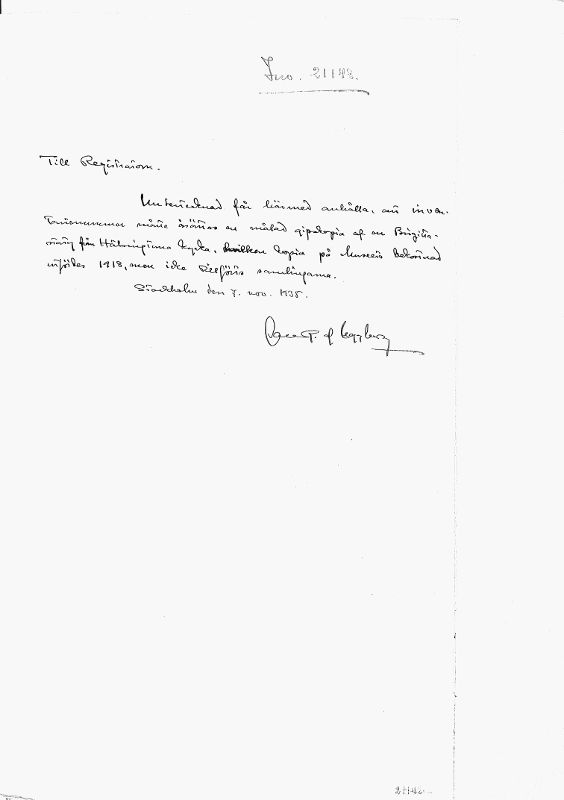 Inv. 21148.
Till Registratorn.
Undertecknad får härmed anhålla, att inven-
tarienummer måtte åsättas en målad gipskopia af en Birgitta-
från kyrka, hvilken kopia på Museets bekostnad
utfördes 1918, men icke tillförts samlingarna.
Stockholm den 7. nov. 1935.
af Ugglas